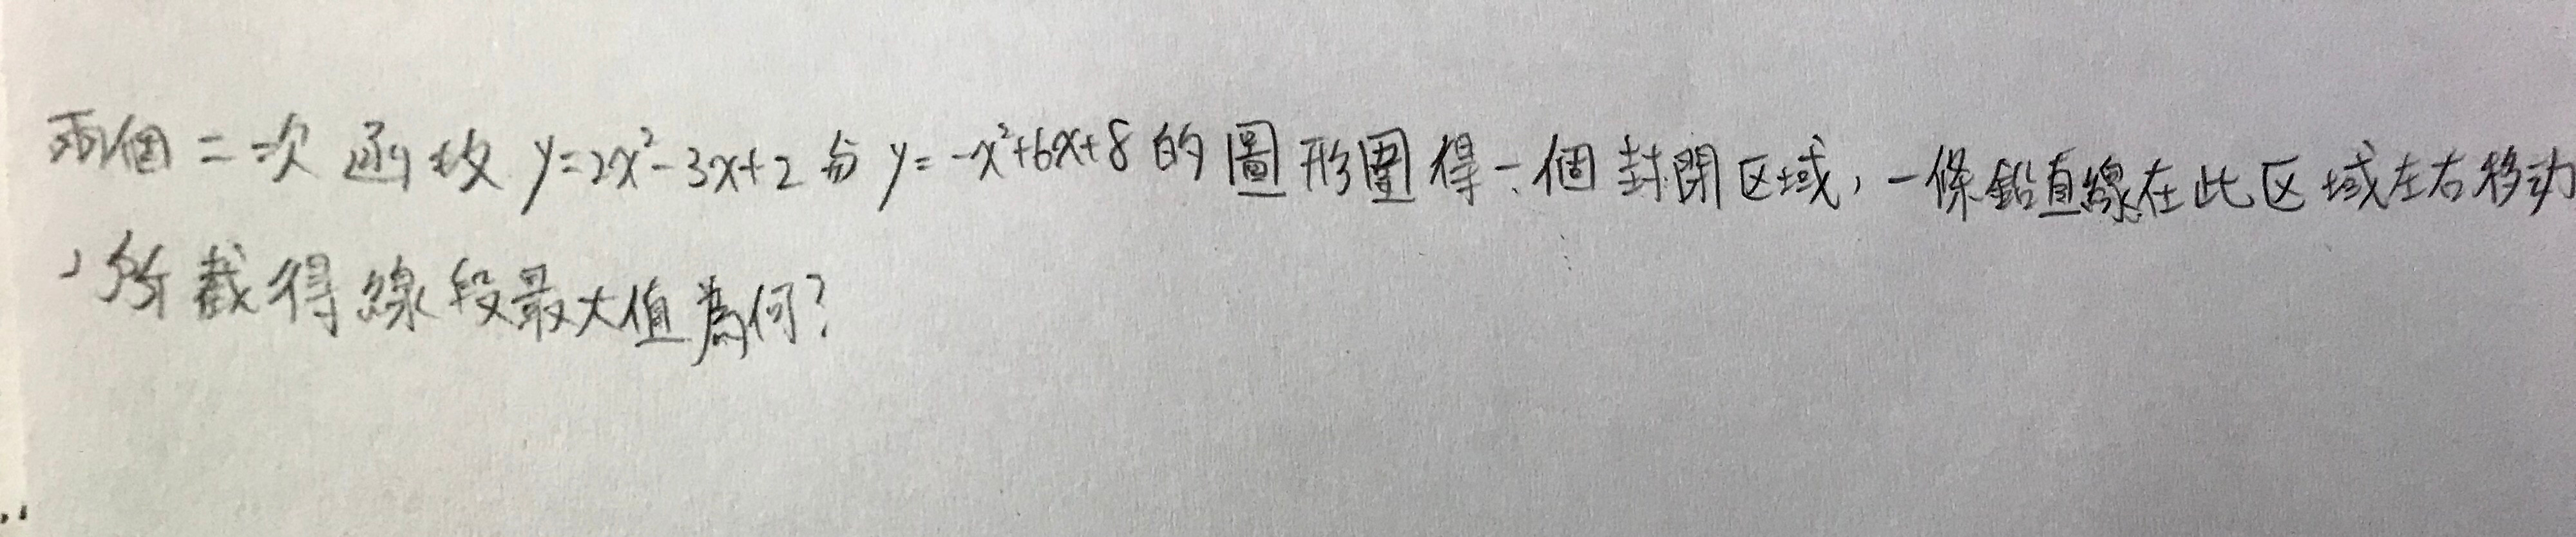 兩個二次函数 y=2x²-3x+2 与 y=-x²+6x+8 的圖形圍得一個封閉区域，一條鉛直線在此区域左右移动
，所截得線段最大值為何？